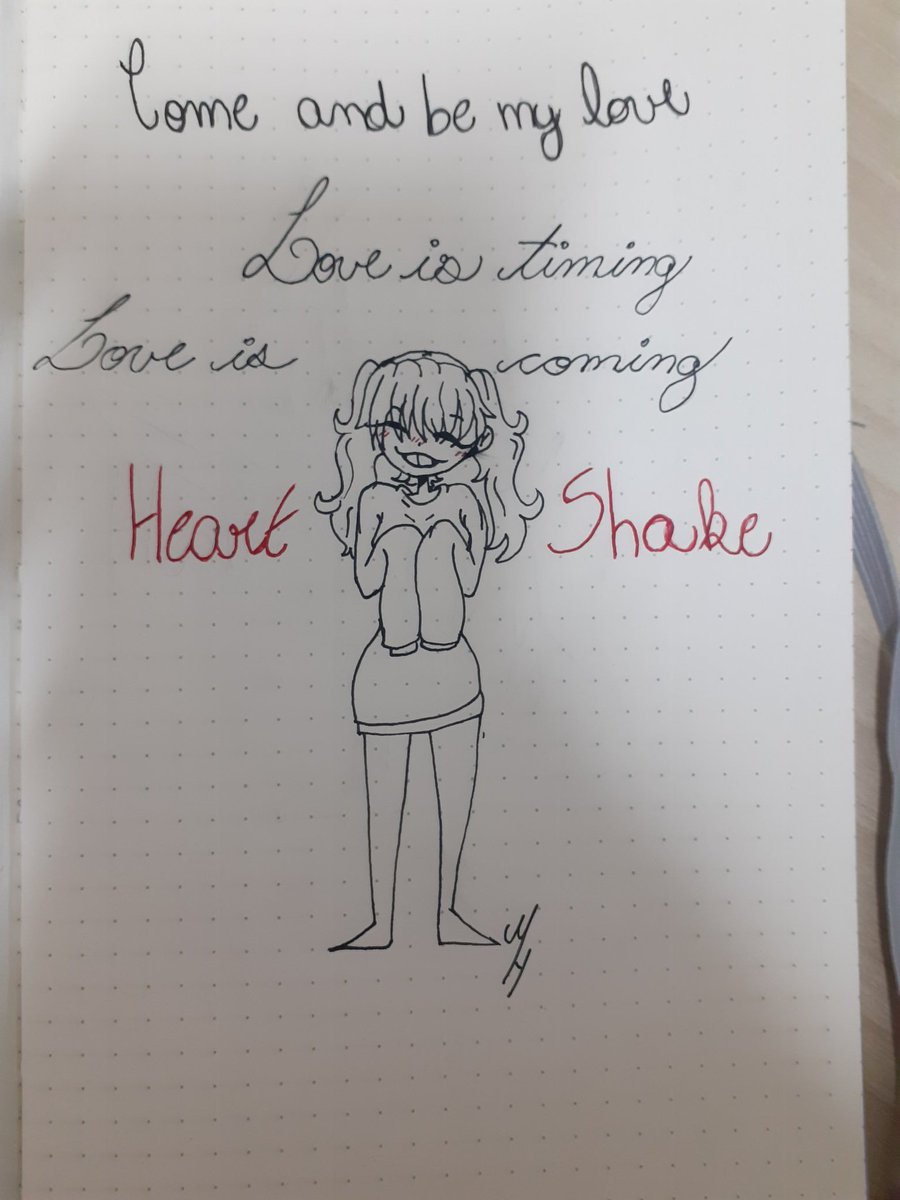 Come and be my love
Love is timing
Love is coming
Heart Shake